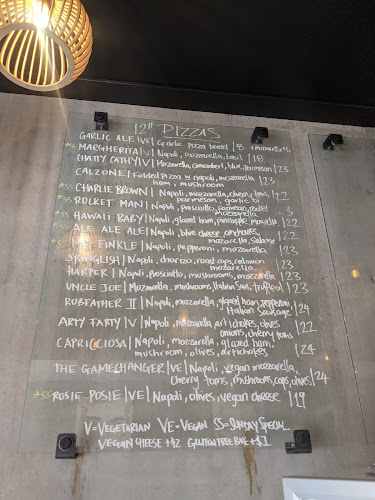 12" PIZZAS
GARLIC ALE |V| Garlic Pizza bread | 8 + mozzarella +2
MARGHERITA |V| Napoli, mozzarella, basil | 18
CHATTY CATHY |V| Mozzarella, camembert, blue, Parmesan | 23
CALZONE | Folded Pizza w napoli, mozzarella
ham, mushroom | 23
*SS CHARLIE BROWN |V| Napoli, mozzarella, cherry toms,
parmesan, garlic oil | 22
*SS ROCKET MAN | Napoli, prosciutto, parmesan, rocket
mozzarella
*SS HAWAII BABY | Napoli, glazed ham, pineapple, mozzarella
*SS ALE ALE ALE | Napoli, blue cheese, anchovies,
mozzarella, Salami | 22
FINKLE | Napoli, pepperoni, mozzarella | 23
SPANGLISH | Napoli, chorizo, roast caps, calamari
mozzarella | 23
HARPER | Napoli, Prosciutto, mushrooms, mozzarella | 23
UNCLE JOE | Mozzarella, mushrooms, Italian Saus, truffle oil | 23
ROBFATHER II | Napoli, mozzarella, glazed ham, pepperoni
Italian Sausage | 24
ARTY FARTY |V| Napoli, mozzarella, artichokes, olives
onions, cherry toms | 22
CAPRICCIOSA | Napoli, mozzarella, glazed ham,
mushroom, olives, artichokes | 24
THE GAMECHANGER |VE| Napoli, vegan mozzarella,
cherry toms, mushroom, caps, olives | 24
*SS ROSIE POSIE |VE| Napoli, olives, vegan cheese | 19
V=VEGETARIAN VE=VEGAN SS=SUNDAY SPECIAL
VEGAN CHEESE +$2 GLUTEN FREE BASE +$